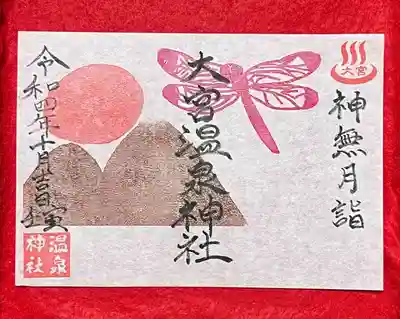 大宮
神無月詣
大宮温泉神社
令和四年十月吉日
温泉
神社